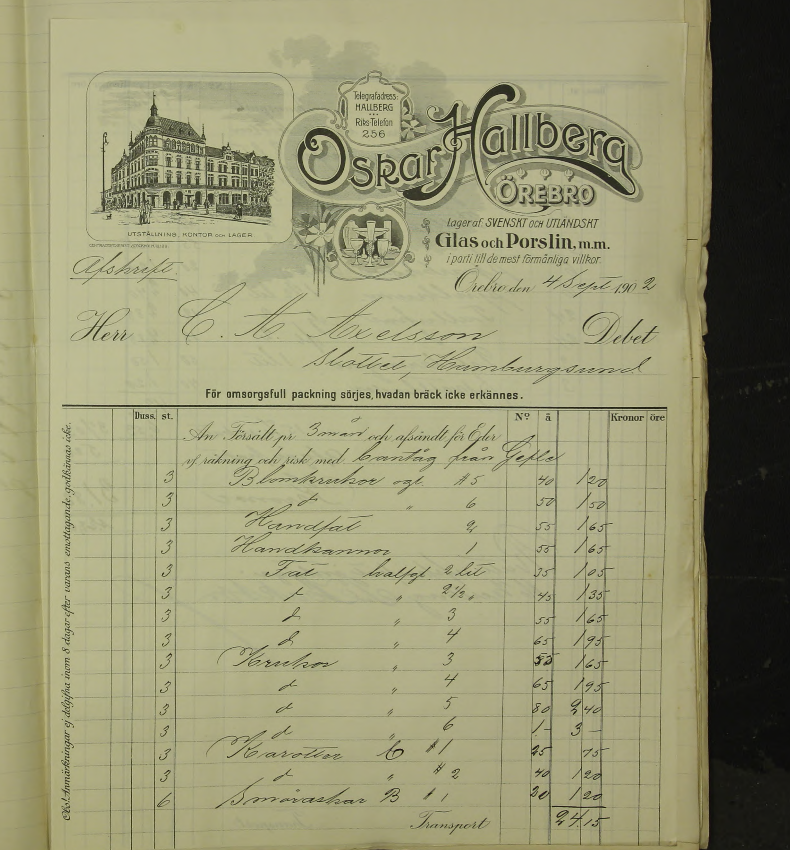 Telegrafadress:
HALLBERG
Riks-Telefon
256
Oskar Hallberg
ÖREBRO
UTSTÄLLNING, KONTOR OCH LAGER
Lager af SVENSKT OCH UTLÄNDSKT
Glas och Porslin, m.m.
i parti till de mest förmånliga villkor.
Afskrift.
Örebro den 4 Sept 1902
Herr C. A. Axelsson Debet
Slottet, Hamburgsund
För omsorgsfull packning sörjes, hvadan bräck icke erkännes.
Duss. st. No. à Kronor öre
An Försålt pr 3 mån och afsändt för Eder
räkning och risk med från Gefle
3 Blomkrukor ogl. #5 40 1 20
3 d " 6 50 1 50
3 Handfat 2 55 1 65
3 Handkannor 1 55 1 65
3 Fat hvalfgl. 2 lit 35 1 05
3 d " 2 1/2 " 45 1 35
3 d " 3 55 1 65
3 d " 4 65 1 95
3 Krukor " 3 55 1 65
3 d " 4 65 1 95
3 d " 5 80 2 40
3 d " 6 1- 3 -
3 Karotter C #1 25 75
3 d " #2 40 1 20
6 Smöraskar B #1 20 1 20
Transport 24.15
Obs! Anmärkningar ej delgifna inom 8 dagar efter varans emottagande godkännas icke.